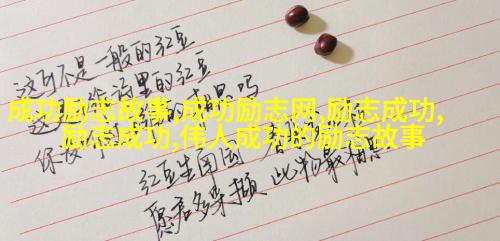 这可不是一般的红豆
这是
海里的红豆
吗
你没
成功励志故事,成功励志网,励志成功,
励志成功,伟人成功的励志故事
红豆生南国
愿君多采撷 此物最相思